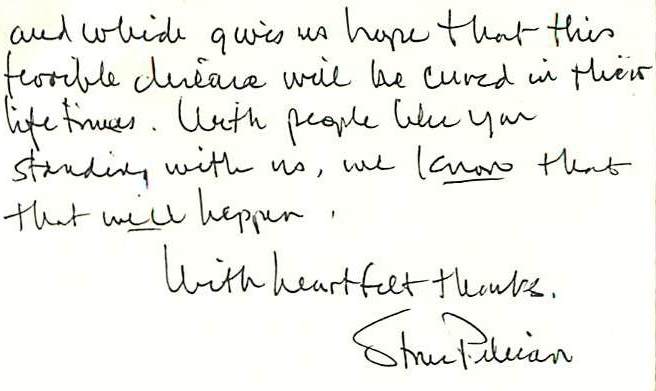 and which gives us hope that this
terrible disease will be cured in their
lifetimes. With people like you
standing with us, we know that
that will happen.
With heartfelt thanks.